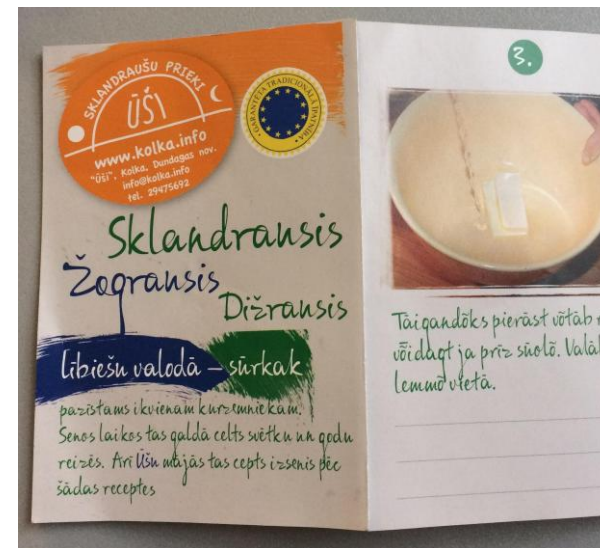 SKLANDRAUŠU PRIEKI
ŪŠI
www.kolka.info
"Ūši", Kolka, Dundagas nov.
info@kolka.info
tel. 29475692
GARANTĒTA TRADICIONĀLĀ ĪPATNĪBA
Sklandrausis
Žograusis
Dižrausis
lībiešu valodā – sūrkak
pazīstams ikvienam kurzemniekam.
Senos laikos tas galdā celts svētku un godu
reizēs. Arī Ūšu mājās tas cepts izsenis pēc
šādas receptes
3.
Taigandõks pierāst võtāb
võidagt ja prīz sūolõ. Valāb
lemmõ vietā.